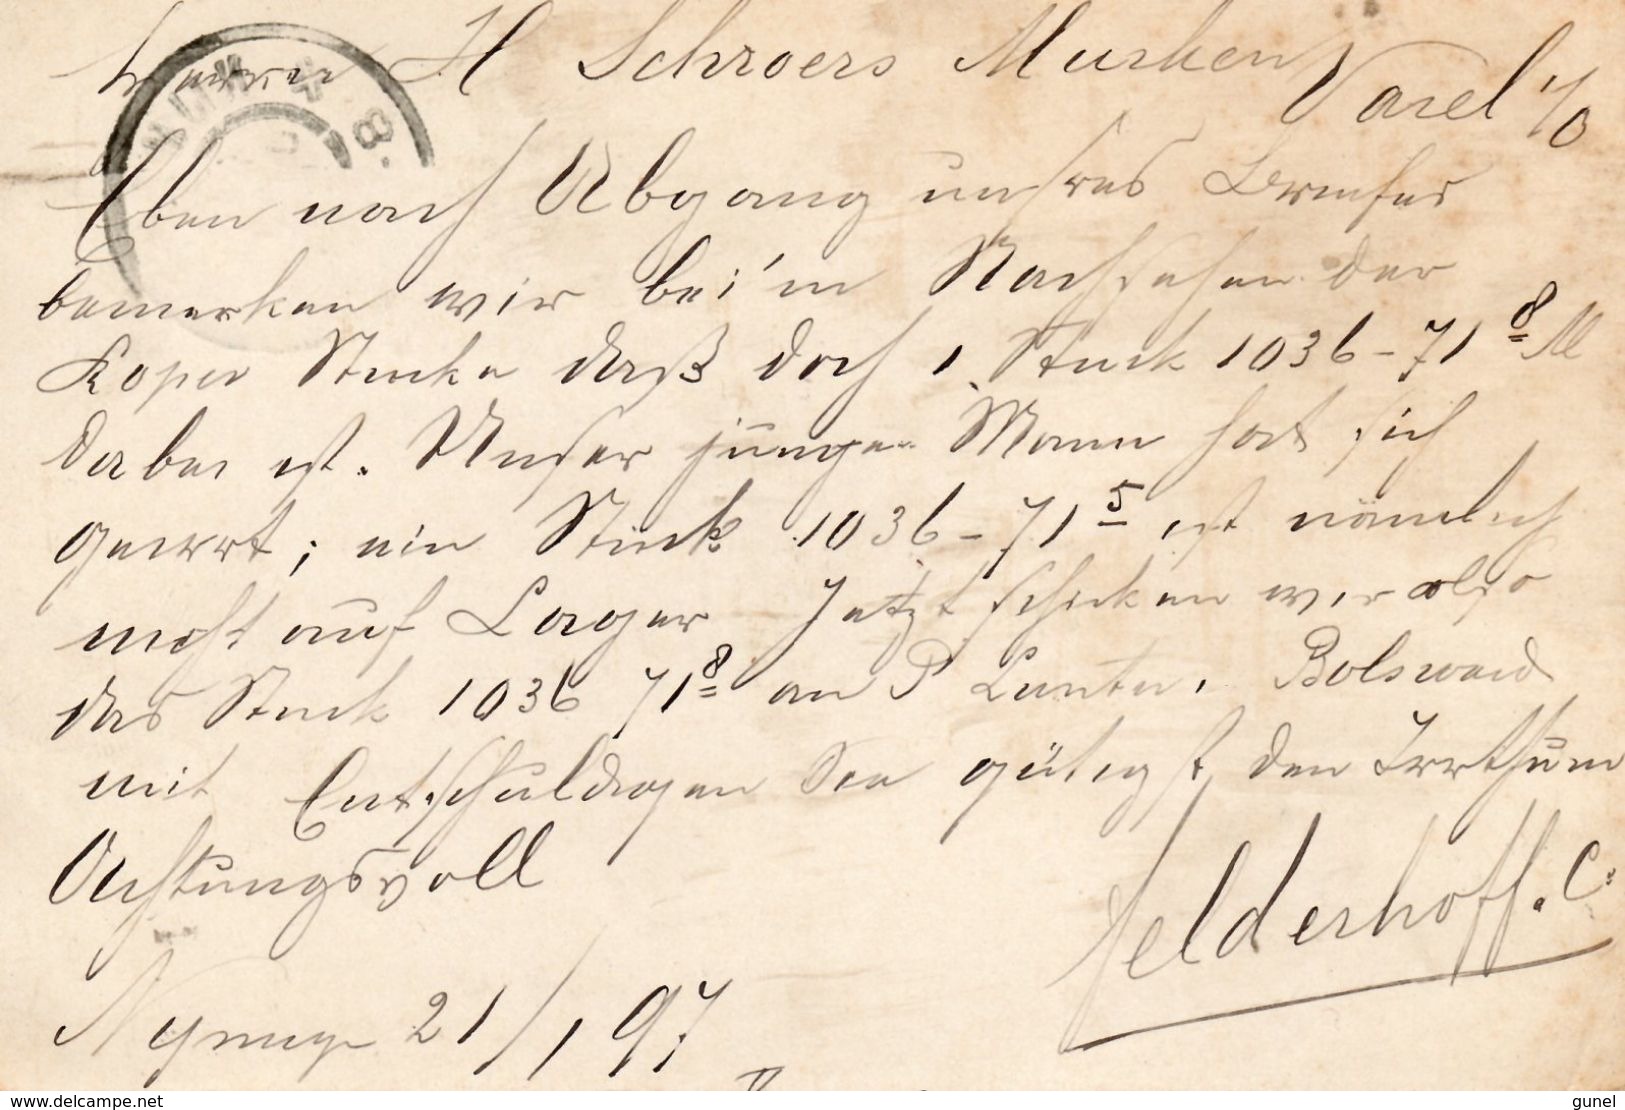 Herren H Schroers Murken
Varel i/O
Eben nach Abgang unsres Briefes
bemerken wir bei'm Nachsehen der
Koper Stücke daß doch 1 Stück 1036-71 8 M
dabei ist. Unser junger Mann hat sich
geirrt; ein Stück 1036-71 5 ist nämlich
nicht auf Lager Jetzt schicken wir also
das Stück 1036 71 8 an P Bolsward
mit Entschuldigen Sie gütigst den Irrthum
Achtungsvoll
Felderhoff. C:
Nymwge 21/1 97
www.delcampe.net
gunel